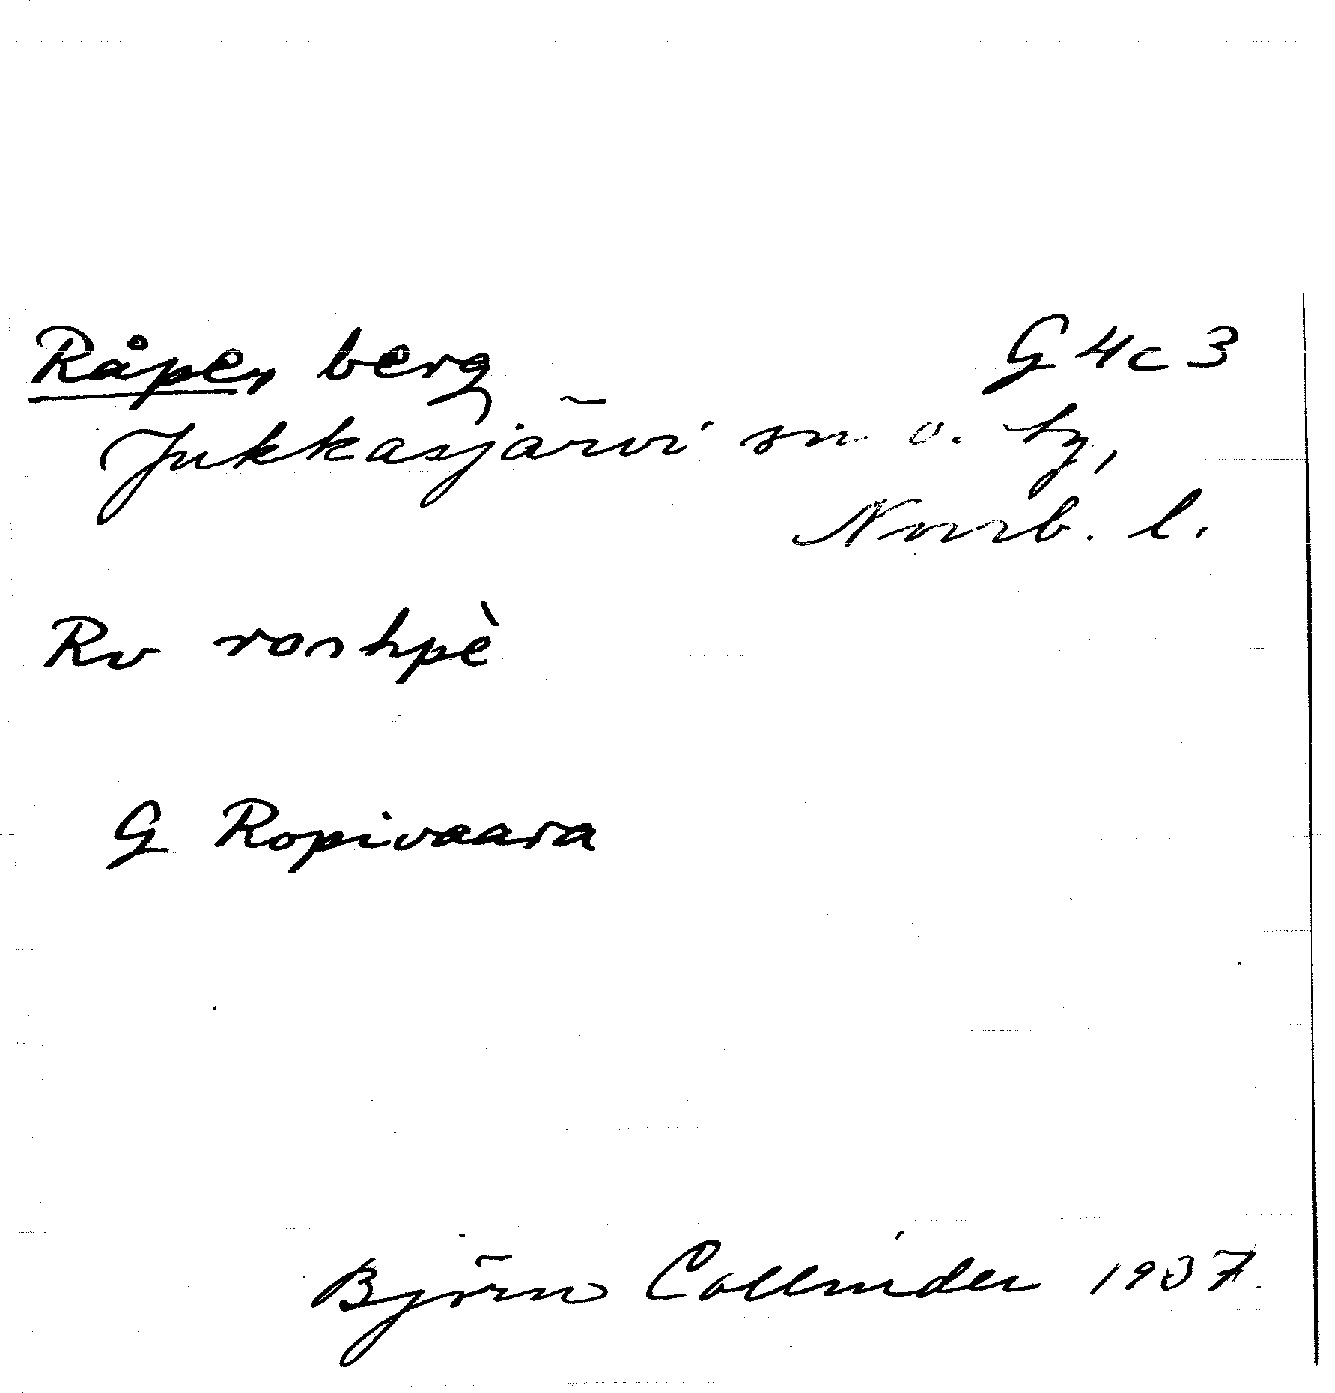 Råpe, berg G 4c 3
Jukkasjärvi sn o. tg,
Norrb. l.
Rv
G Ropivaara
Björn Collinder 1937.